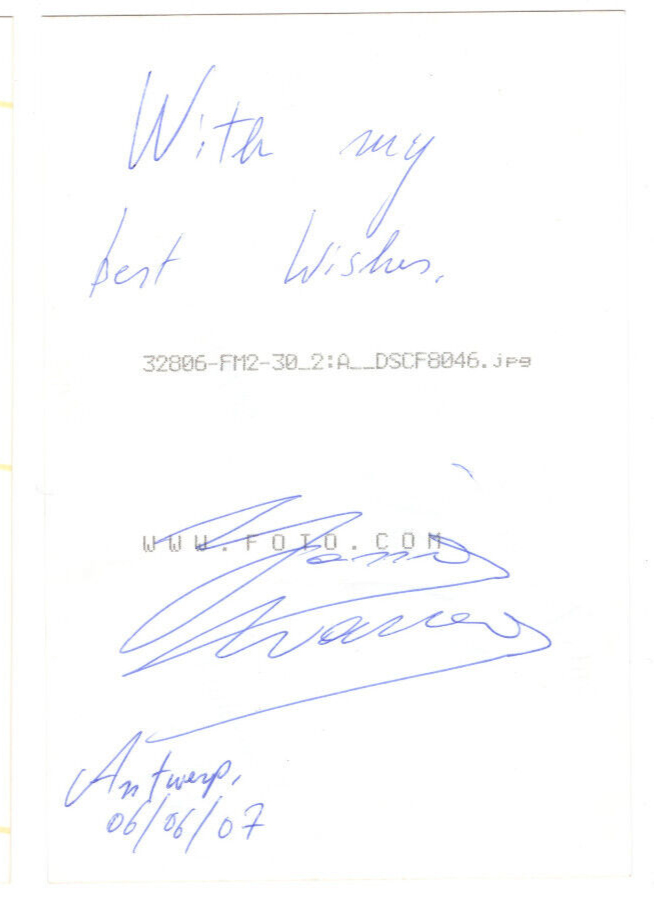 With my
best wishes.
32806-FM2-30_2:A__DSCF8046.jpg
WWW.FOTO.COM
Antwerp,
06/06/07